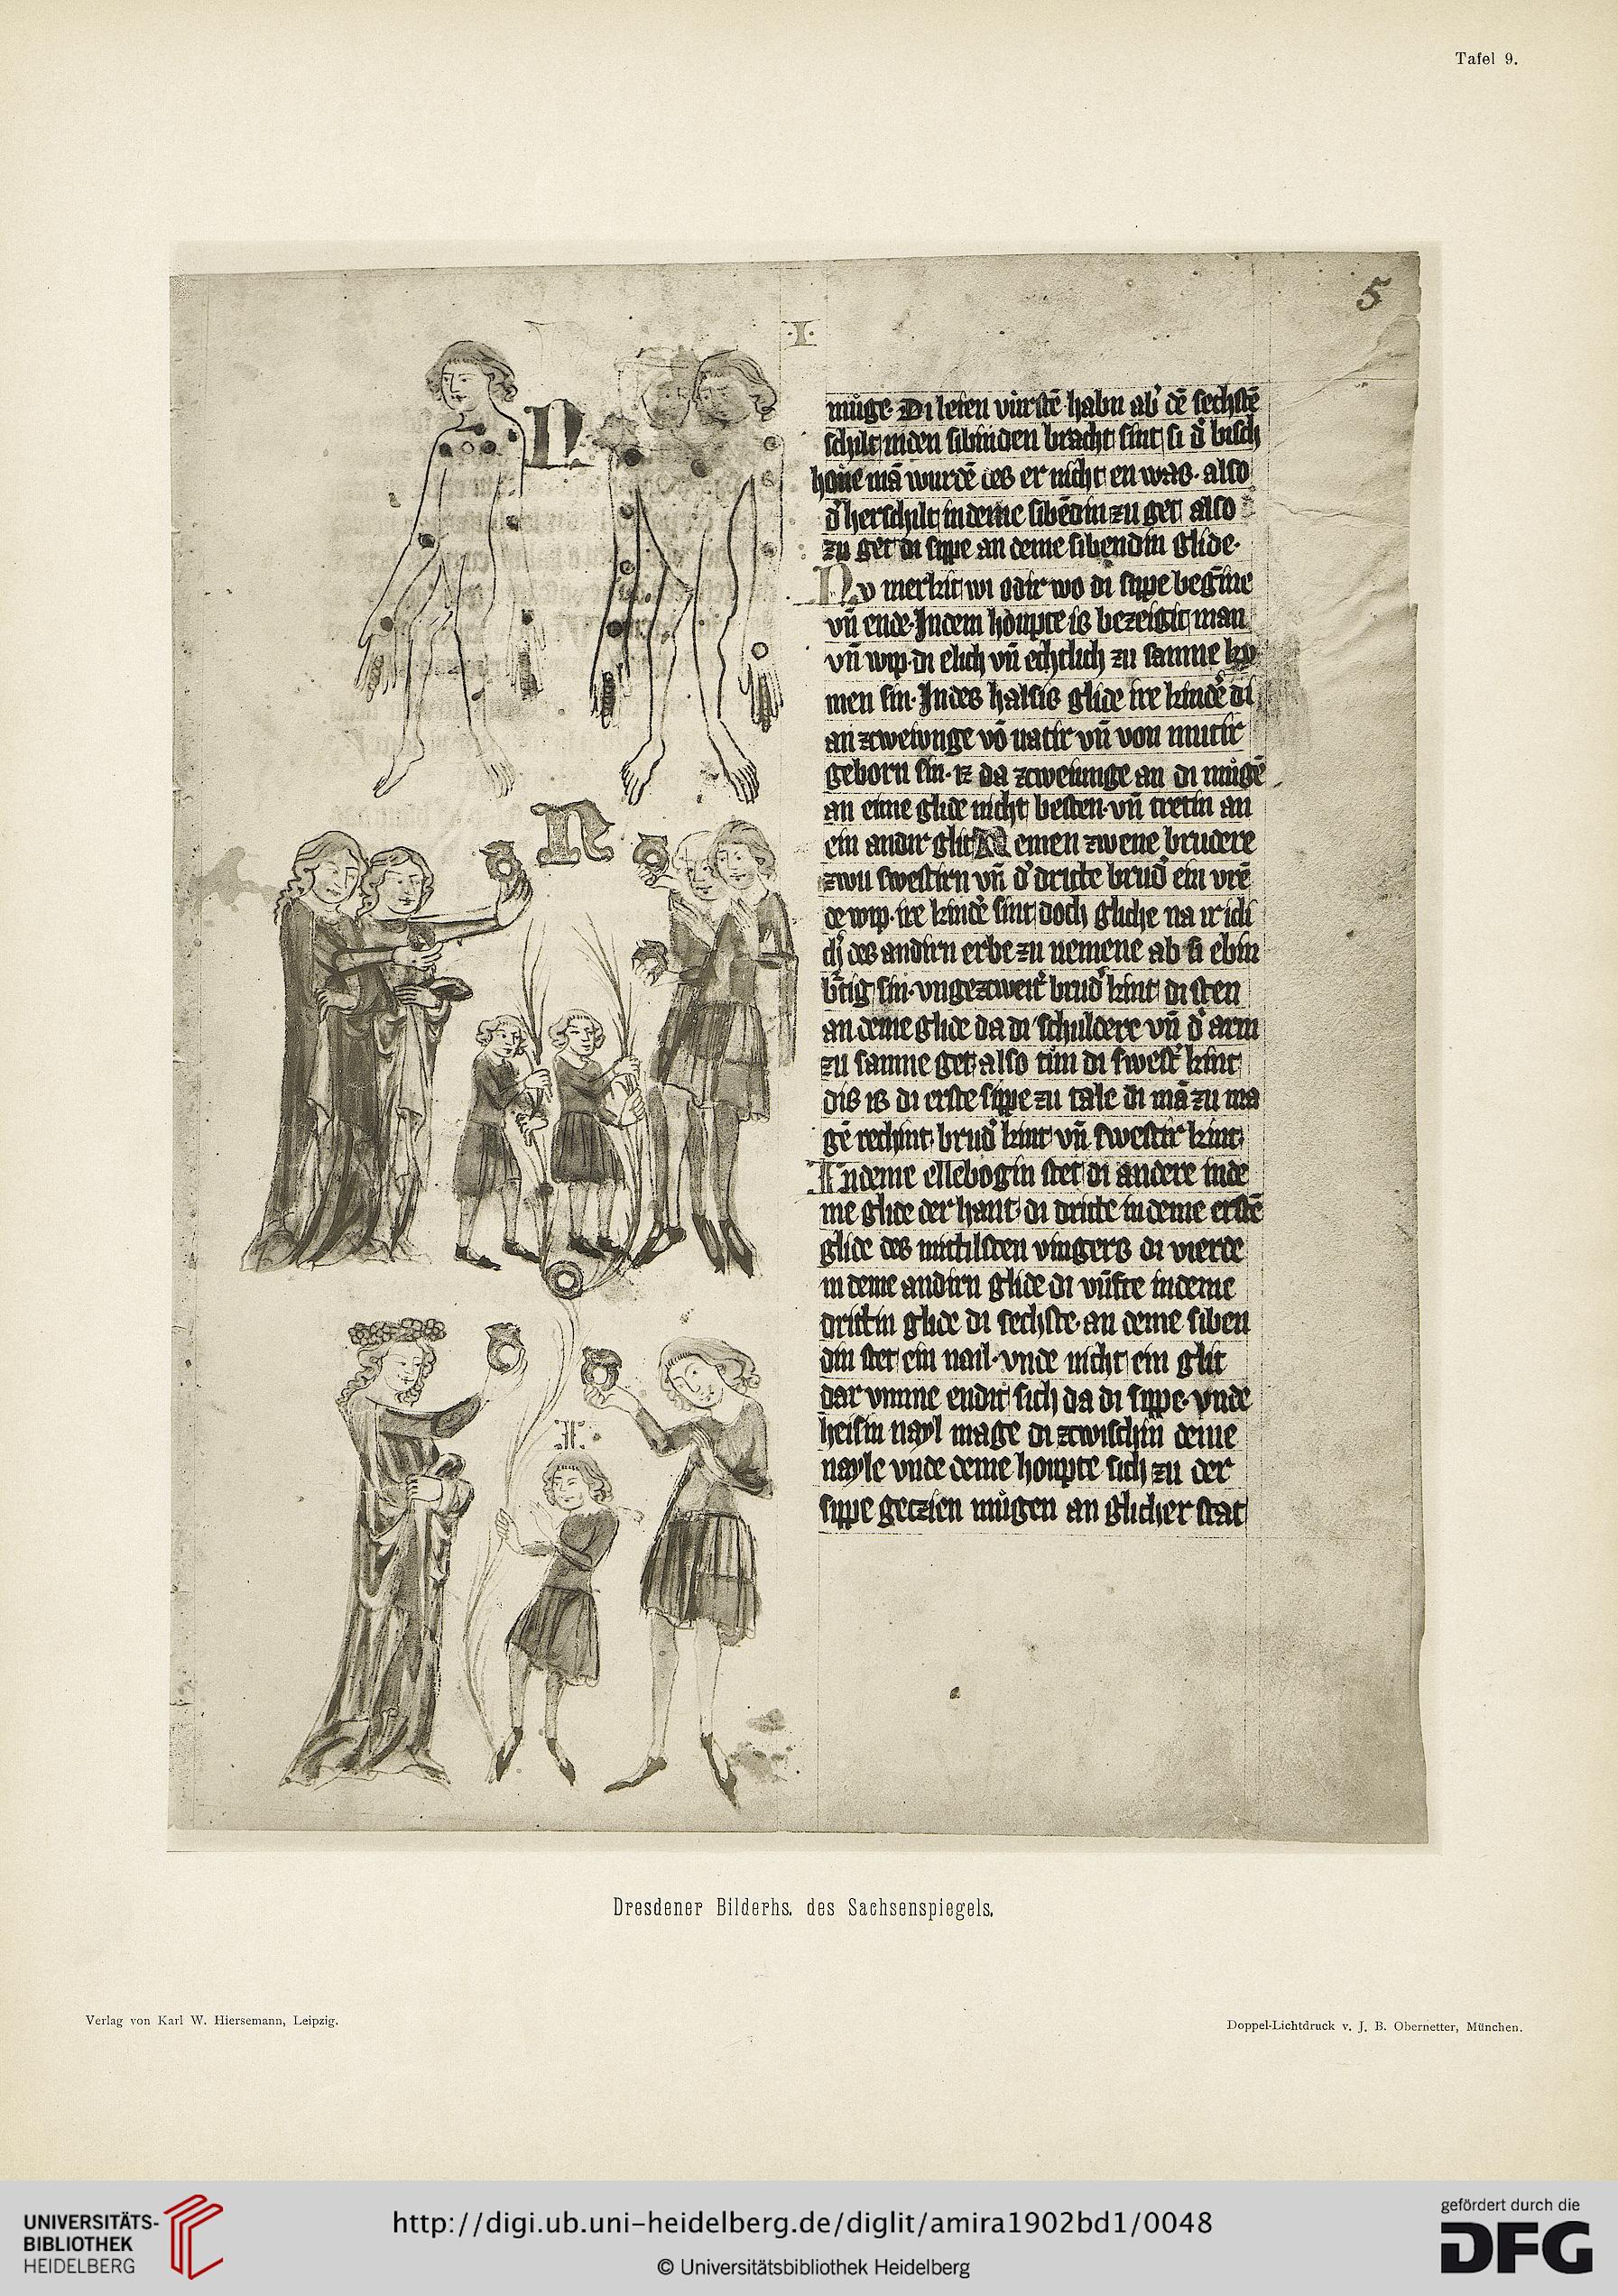 Tafel 9.
5
·I·
N
müge· Di leien vürstē habn ab' dē sechstē
schilt in den sibinden bracht sint si d' bisch
houe mā wurdē des er nicht en was· also
d' herschilt in deme sibēdin zu get also
zu get di sippe an deme sibendin glide·
Nv merkit wi odir wo di sippe begīne
vn̄ ende· Jn dem houpte is bezeigit man
vn̄ wip· di elich vn̄ echtlich zu samne ko
men sin· Jn des halsis glide ire kindē di
an zcweiunge vō vatir vn̄ von mutir
geborn sin· iz da zcweiunge an di mügē
an eime glide nicht besten· vn̄ tretin an
ein andir glit N emen zwene brudere
zwu swestirn vn̄ d' dritte brud' ein vrē
de wip· ire kindē sint doch gliche na itidi
ch' des andirn erbe zu nemene ab si ebin
b'tig sin· vngezcweit' brud' kint di sten
an deme glide da di schuldere vn̄ d' arm
zu samne get· also tun di swest' kint
dis is di erste sippe zu tale di mā zu ma
gē rechint· brud' kint vn̄ swestir kint
In deme ellebogin stet di andere in de
me glide der hant· di dritte in deme erstē
glide des mittilsten vingers di vierde
in deme andirn glide di vünfte in deme
drittin glide di sechste· an deme siben
din stet ein nail· vnde nicht ein glit
dar vmme endit sich da di sippe· vnde
heisin nayl mage di zcwischin deme
nayle vnde deme houpte sich zu der
sippe geczien mügen an glicher stat
N
I·
Dresdener Bilderhs. des Sachsenspiegels.
Verlag von Karl W. Hiersemann, Leipzig.
Doppel-Lichtdruck v. J. B. Obernetter, München.
UNIVERSITÄTS-
BIBLIOTHEK
HEIDELBERG
http://digi.ub.uni-heidelberg.de/diglit/amira1902bd1/0048
© Universitätsbibliothek Heidelberg
gefördert durch die
DFG